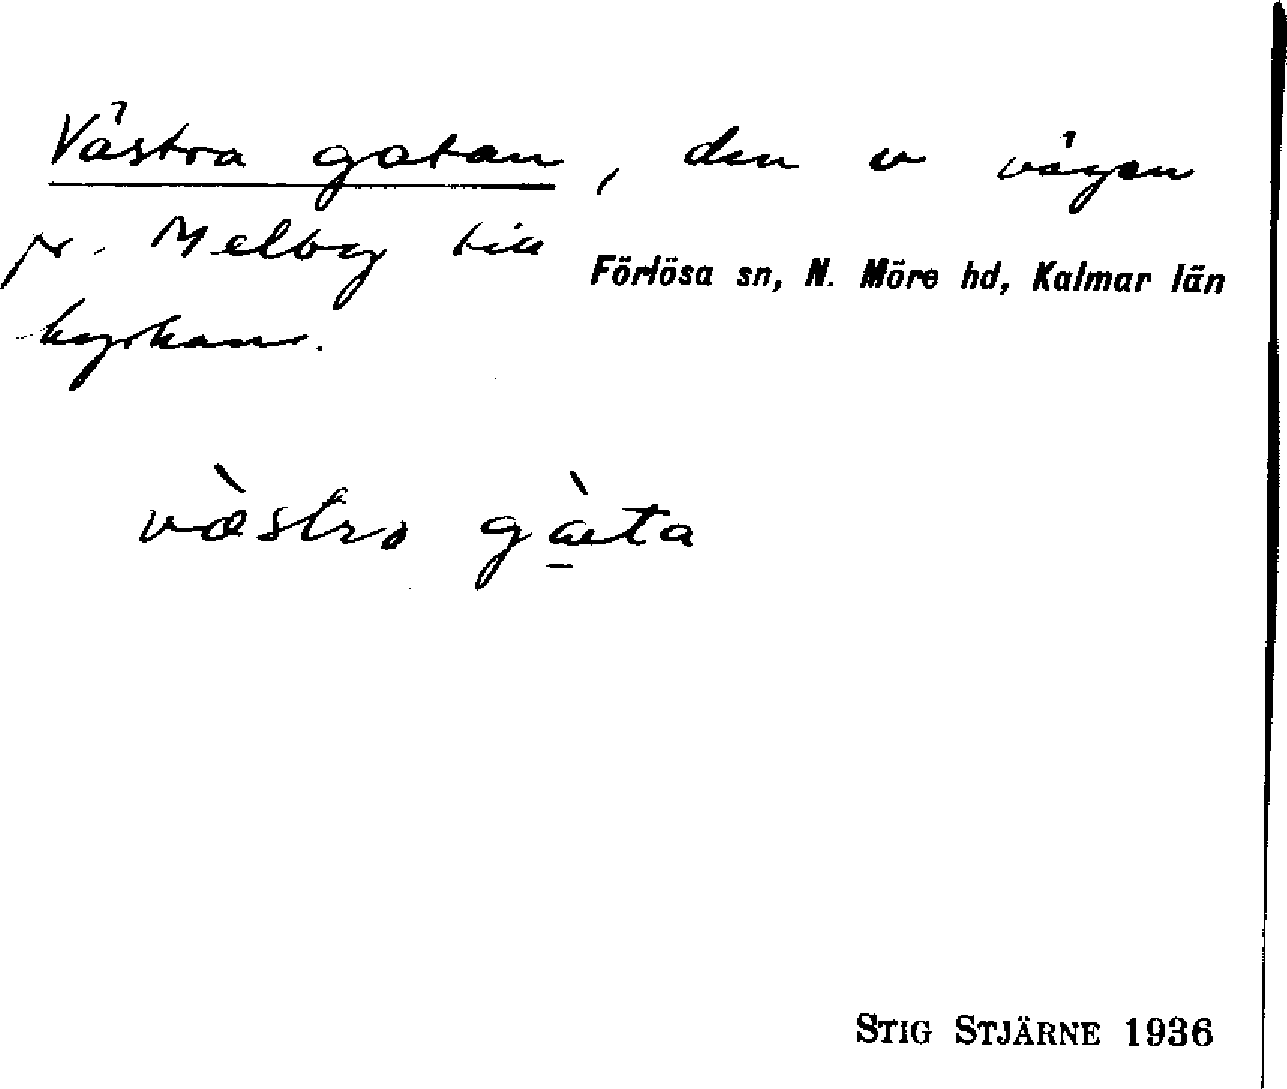 Västra gatan, den v vägen
fr. Melby till
Förlösa sn, N. Möre hd, Kalmar län
kyrkan.
væ̀stro gàeta
STIG STJÄRNE 1936